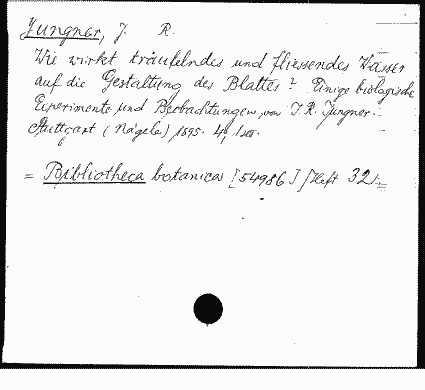 Jungner, J. R.
Wie wirkt träufelndes und fliessendes Wasser
auf die Gestaltung des Blattes? Einige biologische
Experimente und Beobachtungen, von J. R. Jungner.
Stuttgart (Nägele) 1895. 4,
= Bibliotheca botanica [54986] Heft 32.